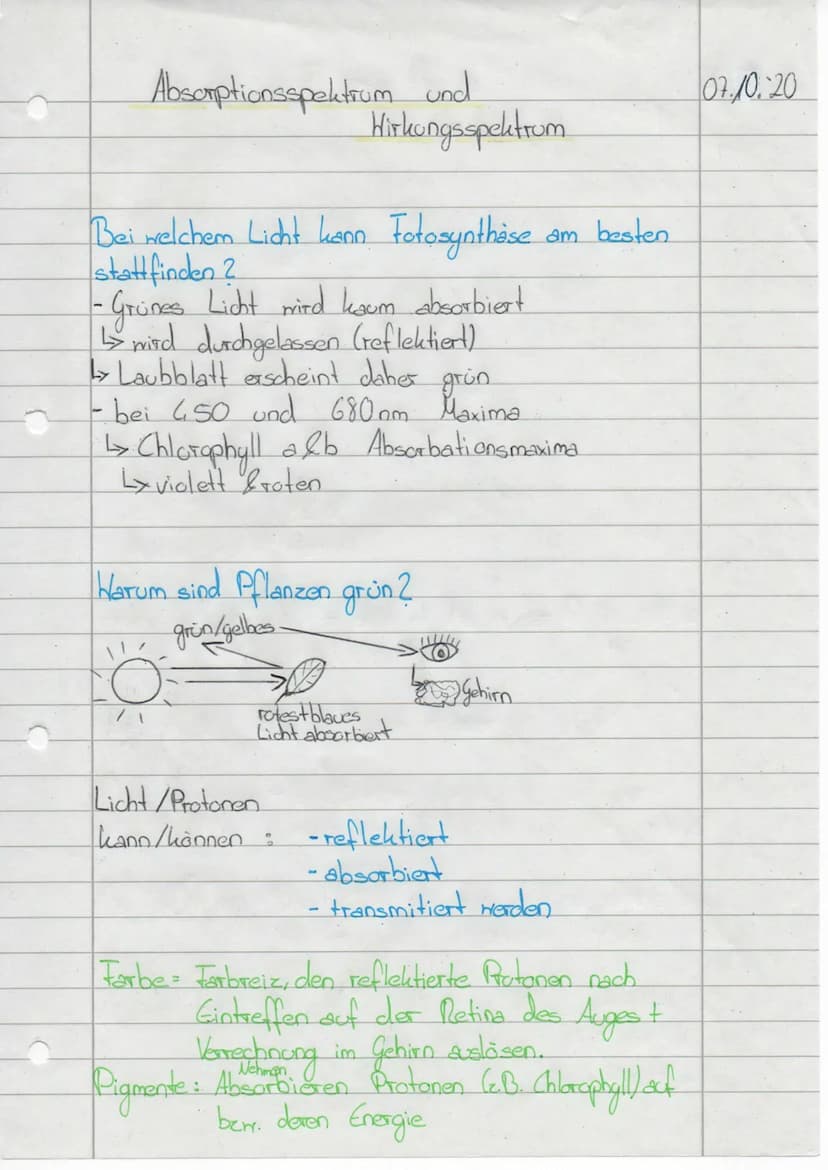 Absorptionsspektrum und
Wirkungsspektrum
07.10.'20
Bei welchem Licht kann Fotosynthese am besten
stattfinden?
- Grünes Licht wird kaum absorbiert
↳ wird durchgelassen (reflektiert)
↳ Laubblatt erscheint daher grün
- bei 450 und 680nm Maxima
↳ Chlorophyll a&b Absorbationsmaxima
↳ violett & roten
Warum sind Pflanzen grün?
grün/gelbes
Gehirn
rotes+blaues
Licht absorbiert
Licht/Protonen
kann/können : - reflektiert
- absorbiert
- transmitiert werden
Farbe = Farbreiz, den reflektierte Protonen nach
Eintreffen auf der Retina des Auges +
Verrechnung im Gehirn auslösen.
Nehmen
Pigmente: Absorbieren Protonen (z.B. Chlorophyll) auf
bzw. deren Energie